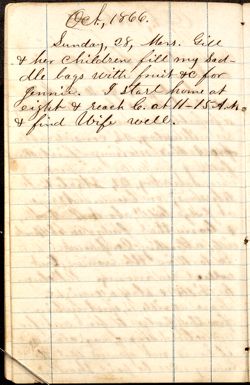 Oct, 1866.
Sunday, 28, Mers. Gill
& her children fill my sad-
dle bags with fruit &c for
Jennie. I start home at
eight & reach C. at 11-15 A.M.
& find Wife well.